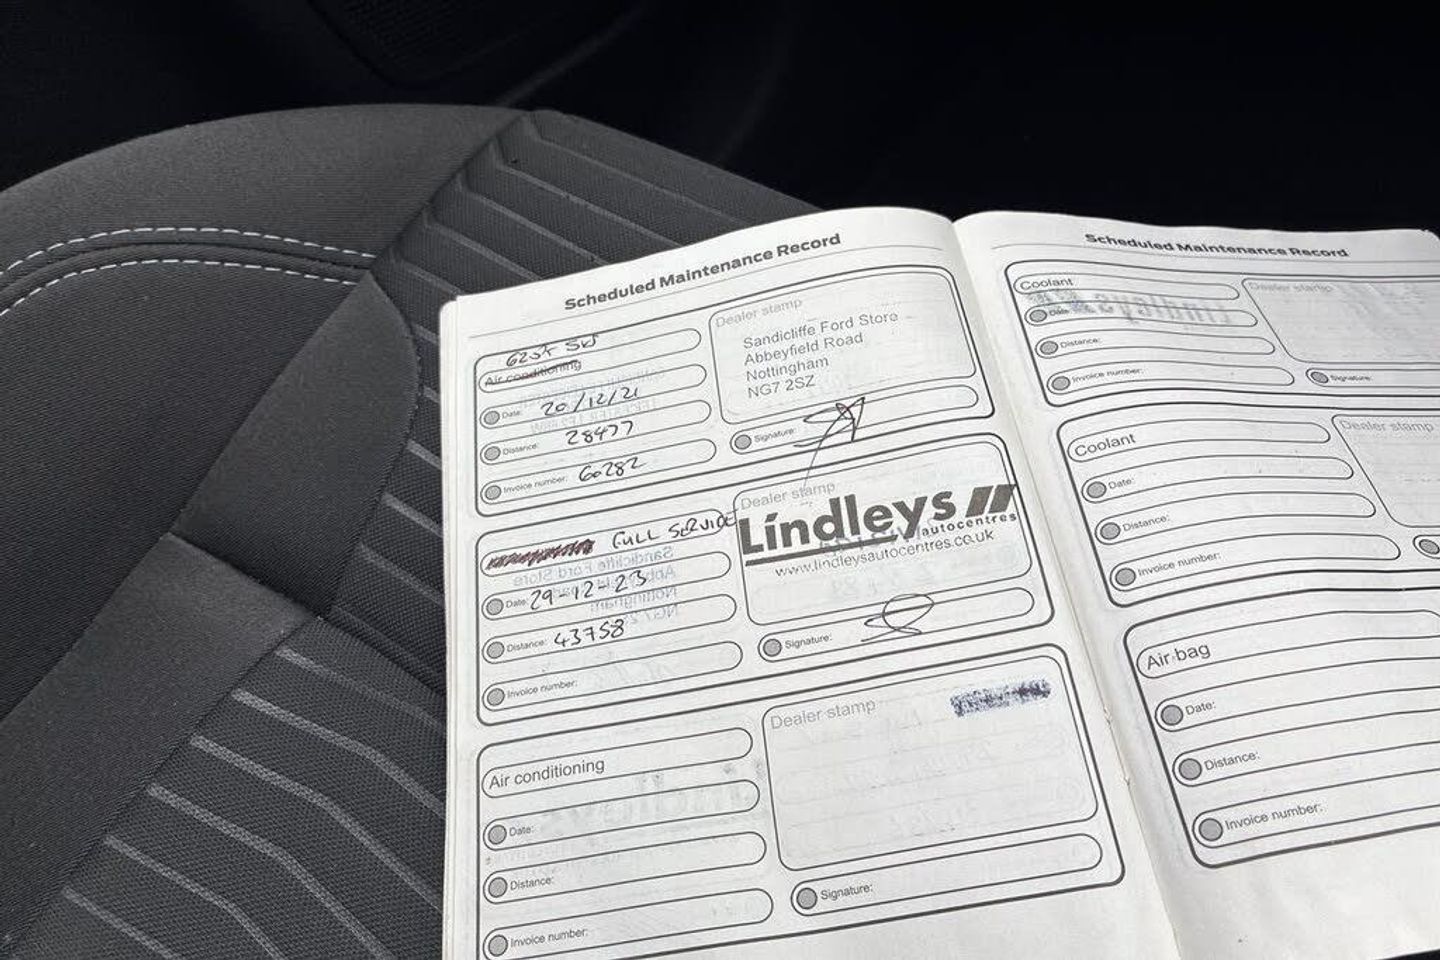 Scheduled Maintenance Record
Air conditioning
Date: 20/12/21
Distance: 28477
Invoice number: 60282
Dealer stamp
Sandicliffe Ford Store
Abbeyfield Road
Nottingham
NG7 2SZ
Signature:
FULL SERVICE
Date: 29-12-23
Distance: 43758
Invoice number:
Dealer stamp
Lindleys
autocentres
www.lindleysautocentres.co.uk
Signature:
Air conditioning
Date:
Distance:
Invoice number:
Dealer stamp
Signature:
Scheduled Maintenance Record
Coolant
Date:
Distance:
Invoice number:
Dealer stamp
Signature:
Coolant
Date:
Distance:
Invoice number:
Dealer stamp
Air bag
Date:
Distance:
Invoice number: